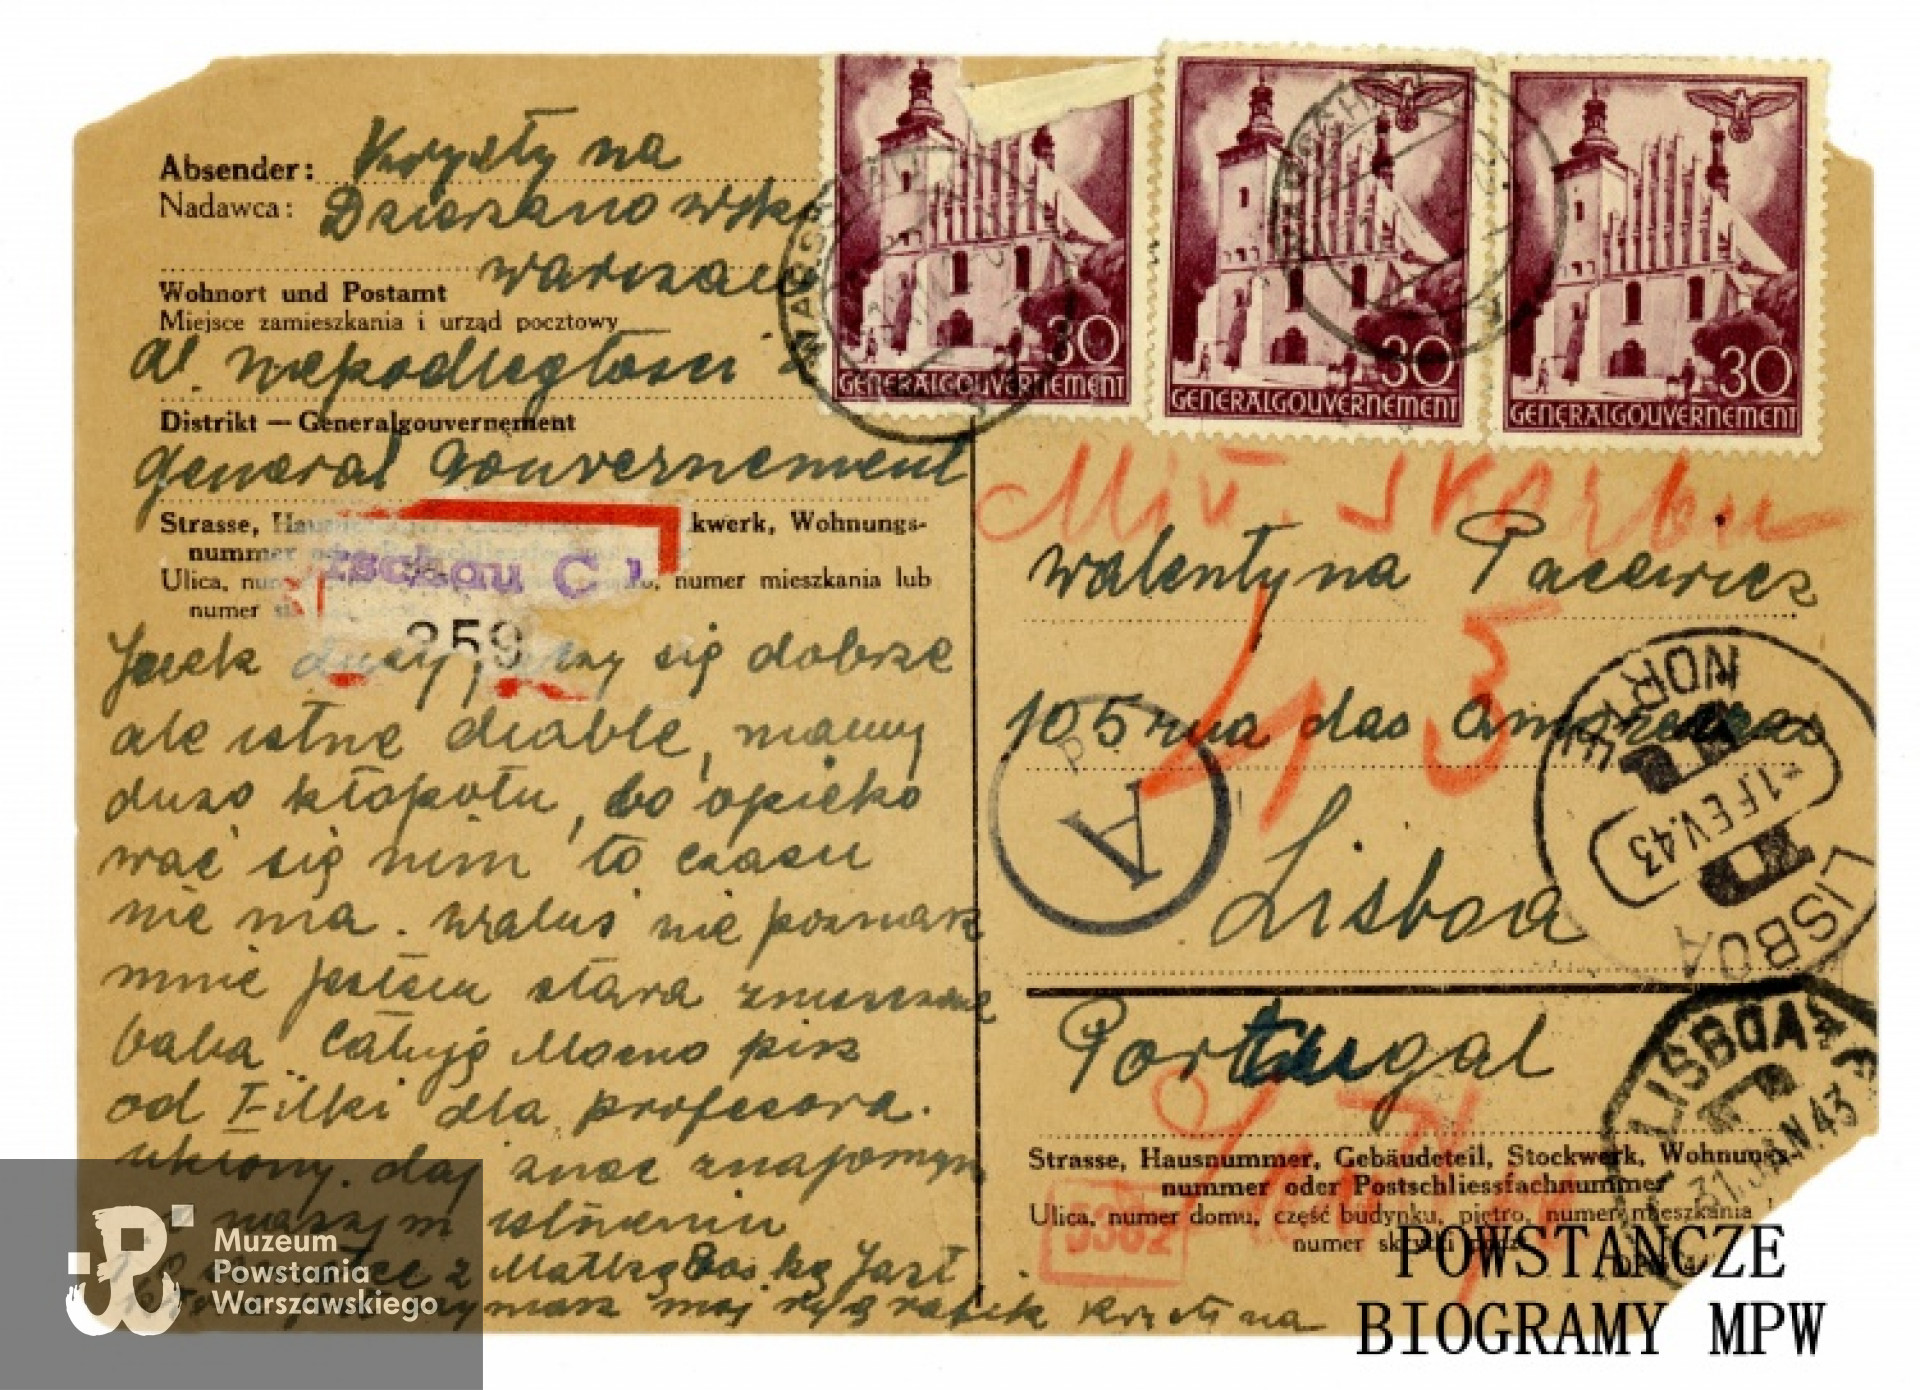 Absender: Krysty na
Nadawca: Dzierzanowska
Warszawa
Wohnort und Postamt
Miejsce zamieszkania i urząd pocztowy
al. niepodległości
Distrikt — Generalgouvernement
General Gouvernement
Strasse, kwerk, Wohnungs-
nummer
Ulica, numer mieszkania lub
numer
rschau C 1
259
Jacek się dobrze
ale istne diable, mamy
dużo kłopotu, bo opieko
wać się nim to czasu
nie ma. Waluś nie poznasz
mnie jestem stara zniszczona
baba. Całuję Mocno pisz
od Filki dla profesora.
ukłony. daj znać znajomym
o naszym istnieniu
z Matką Boską Jest
moj Krystyna
30
GENERALGOUVERNEMENT
30
GENERALGOUVERNEMENT
30
GENERALGOUVERNEMENT
WARSCHAU
Min. Skarbu
Walentyna Pacewicz
45
105 rua das Amoreiras
Lisboa
Portugal
A
LISBOA
NORTE
-1.FEV.43
LISBOA
31.JAN.43
Strasse, Hausnummer, Gebäudeteil, Stockwerk, Wohnungs-
nummer oder Postschliessfachnummer
Ulica, numer domu, część budynku, piętro, numer mieszkania
numer skrytki
5302
Muzeum
Powstania
Warszawskiego
POWSTAŃCZE
BIOGRAMY MPW